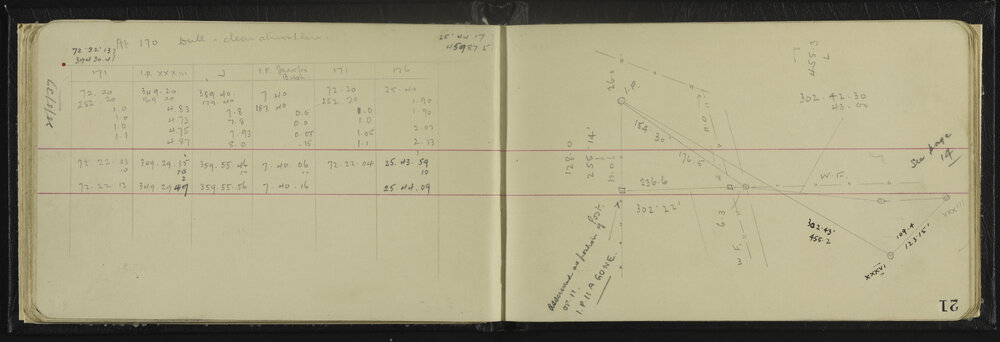 At 170 Dull - clear atmosphere
72.22.13
25.44.17
171 I.P. XXXIII J I.P. Jacobs 171 176
72.20 349.20 359.40 7.40 72.20 25.40
252.20 169.20 179.40 187.40 252.20
1.0 4.83 7.8 0.0 1.0 1.90
1.0 4.73 7.8 0.0 1.0 1.90
1.0 4.75 7.93 0.05 1.05 2.03
1.1 4.87 8.0 .15 1.1 2.13
72.22.03 349.29.35 359.55.46 7.40.06 72.22.04 25.43.59
10 10 10 10 10
72.22.13 349.29.49 359.55.56 7.40.16 25.44.09
I.P.
26.0
455.3
302.42.30
43.00
154.30'
176.5
110.7
See page
14
128.0
255.14'
33.0
236.6
302.22'
W.F.
63
F.
302.43'
455.2
109.4
123.15'
XXXIII
XXXVI
Assumed as position of post.
OP. 11.
I.P. 11 A GONE.
21